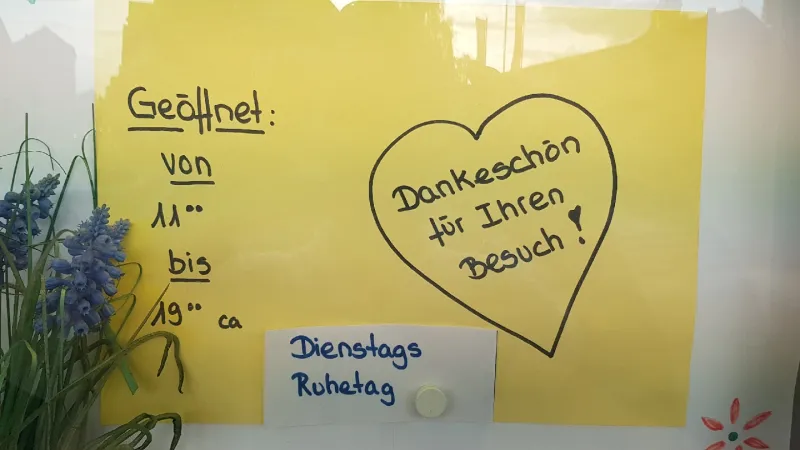 Geöffnet:
von
11⁰⁰
bis
19⁰⁰ ca
Dankeschön
für Ihren
Besuch!
Dienstags
Ruhetag